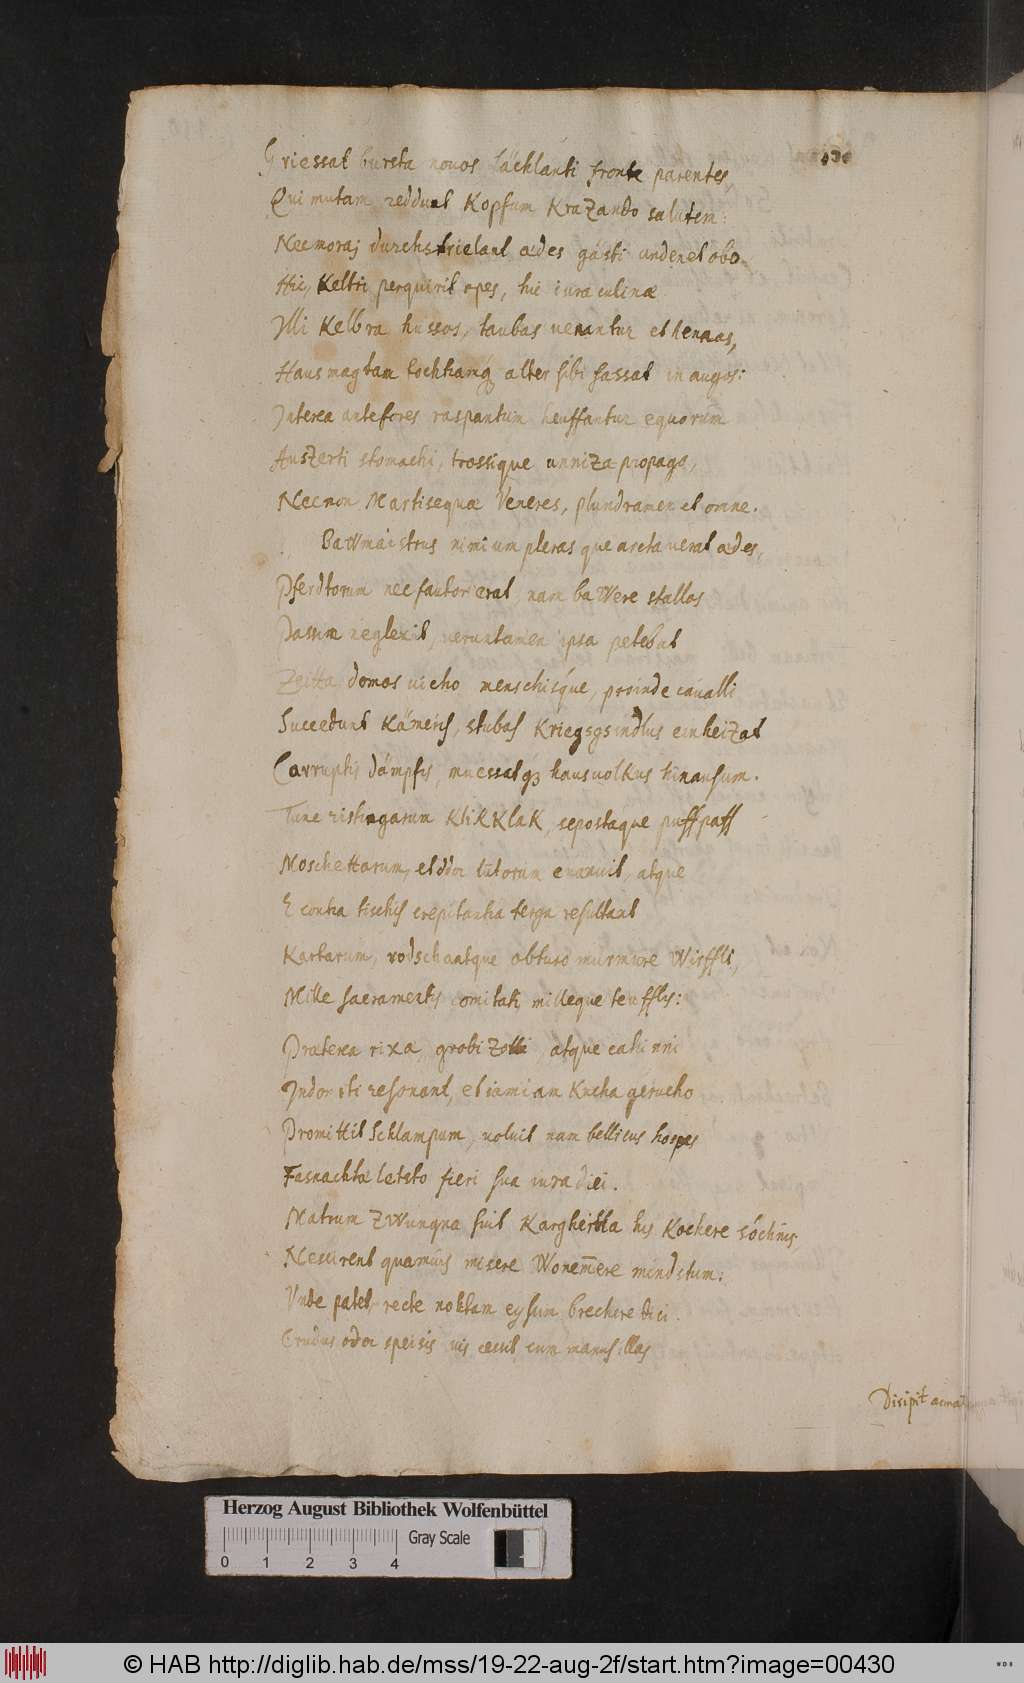 430
Griessat bursta novos lächlanti fronte parentes,
Qui mutam reddunt Kopfum KraZando salutem:
Nec moraj durchstrielant ædes gästi undenet obo
Hic, Keltri perquirit opes, hic iura culinæ
Illi Kelbra hussos, taubas venantur et hennas,
Hausmagtam tochtamq3 alter sibi fassat in augos:
Interea ante fores raspantum heuffantur equorum
AusZerti stomachi, trossique unniza propago,
Necnon Martisequæ Veneres, plundramen et omne.
BaWmaistrus nimium pleras que arctaverat ædes,
Pferdtorum nec fautor erat, nam baWere stallos
Passim neglexit, veruntamen ipsa petebat
Zeitta domos vicho menschisque, proinde cavalli
Succedunt Kämeris, stubas Kriegsgsindlus einheizat
Corruptis dämpfis, muessatq3 hausvolkus hinausum.
Tunc ristingarum KliKKlaK, sepostaque puffpaff
Moschettarum, et ddor tutorum evanuit, atque
E contra tischis crepitantia terga resultant
Kartarum, rodschantque obturo murmure Wirffli,
Mille sacramentis comitati milleque teufflis:
Præterea rixa, grobi Zotti, atque cachinni
Indorsti resonant, etiam iam Kucha gerucho
Promittit Schlampum, voluit nam bellicus hospes
Fasnachtæ letsto fieri sua iura diei.
Matrum ZWungna fuit Kargheitta his Kochere Köchinis
Nescirent quamvis misere Wonem̅ere mindstum:
Unde patet, recte noktam eysum brechere dici.
Crudus odor speisis vis cessit cum manus illas
Disipit arma
Herzog August Bibliothek Wolfenbüttel
0 1 2 3 4 Gray Scale
© HAB http://diglib.hab.de/mss/19-22-aug-2f/start.htm?image=00430